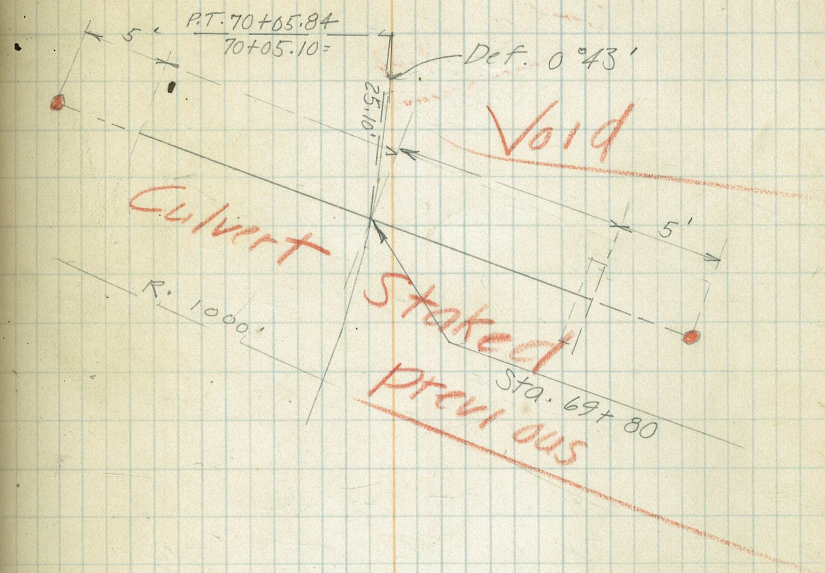 P.T. 70+05.84
70+05.10=
5'
Def. 0°43'
25.10'
Void
5'
Culvert
R. 1000'
Staked
Sta. 69+80
previous